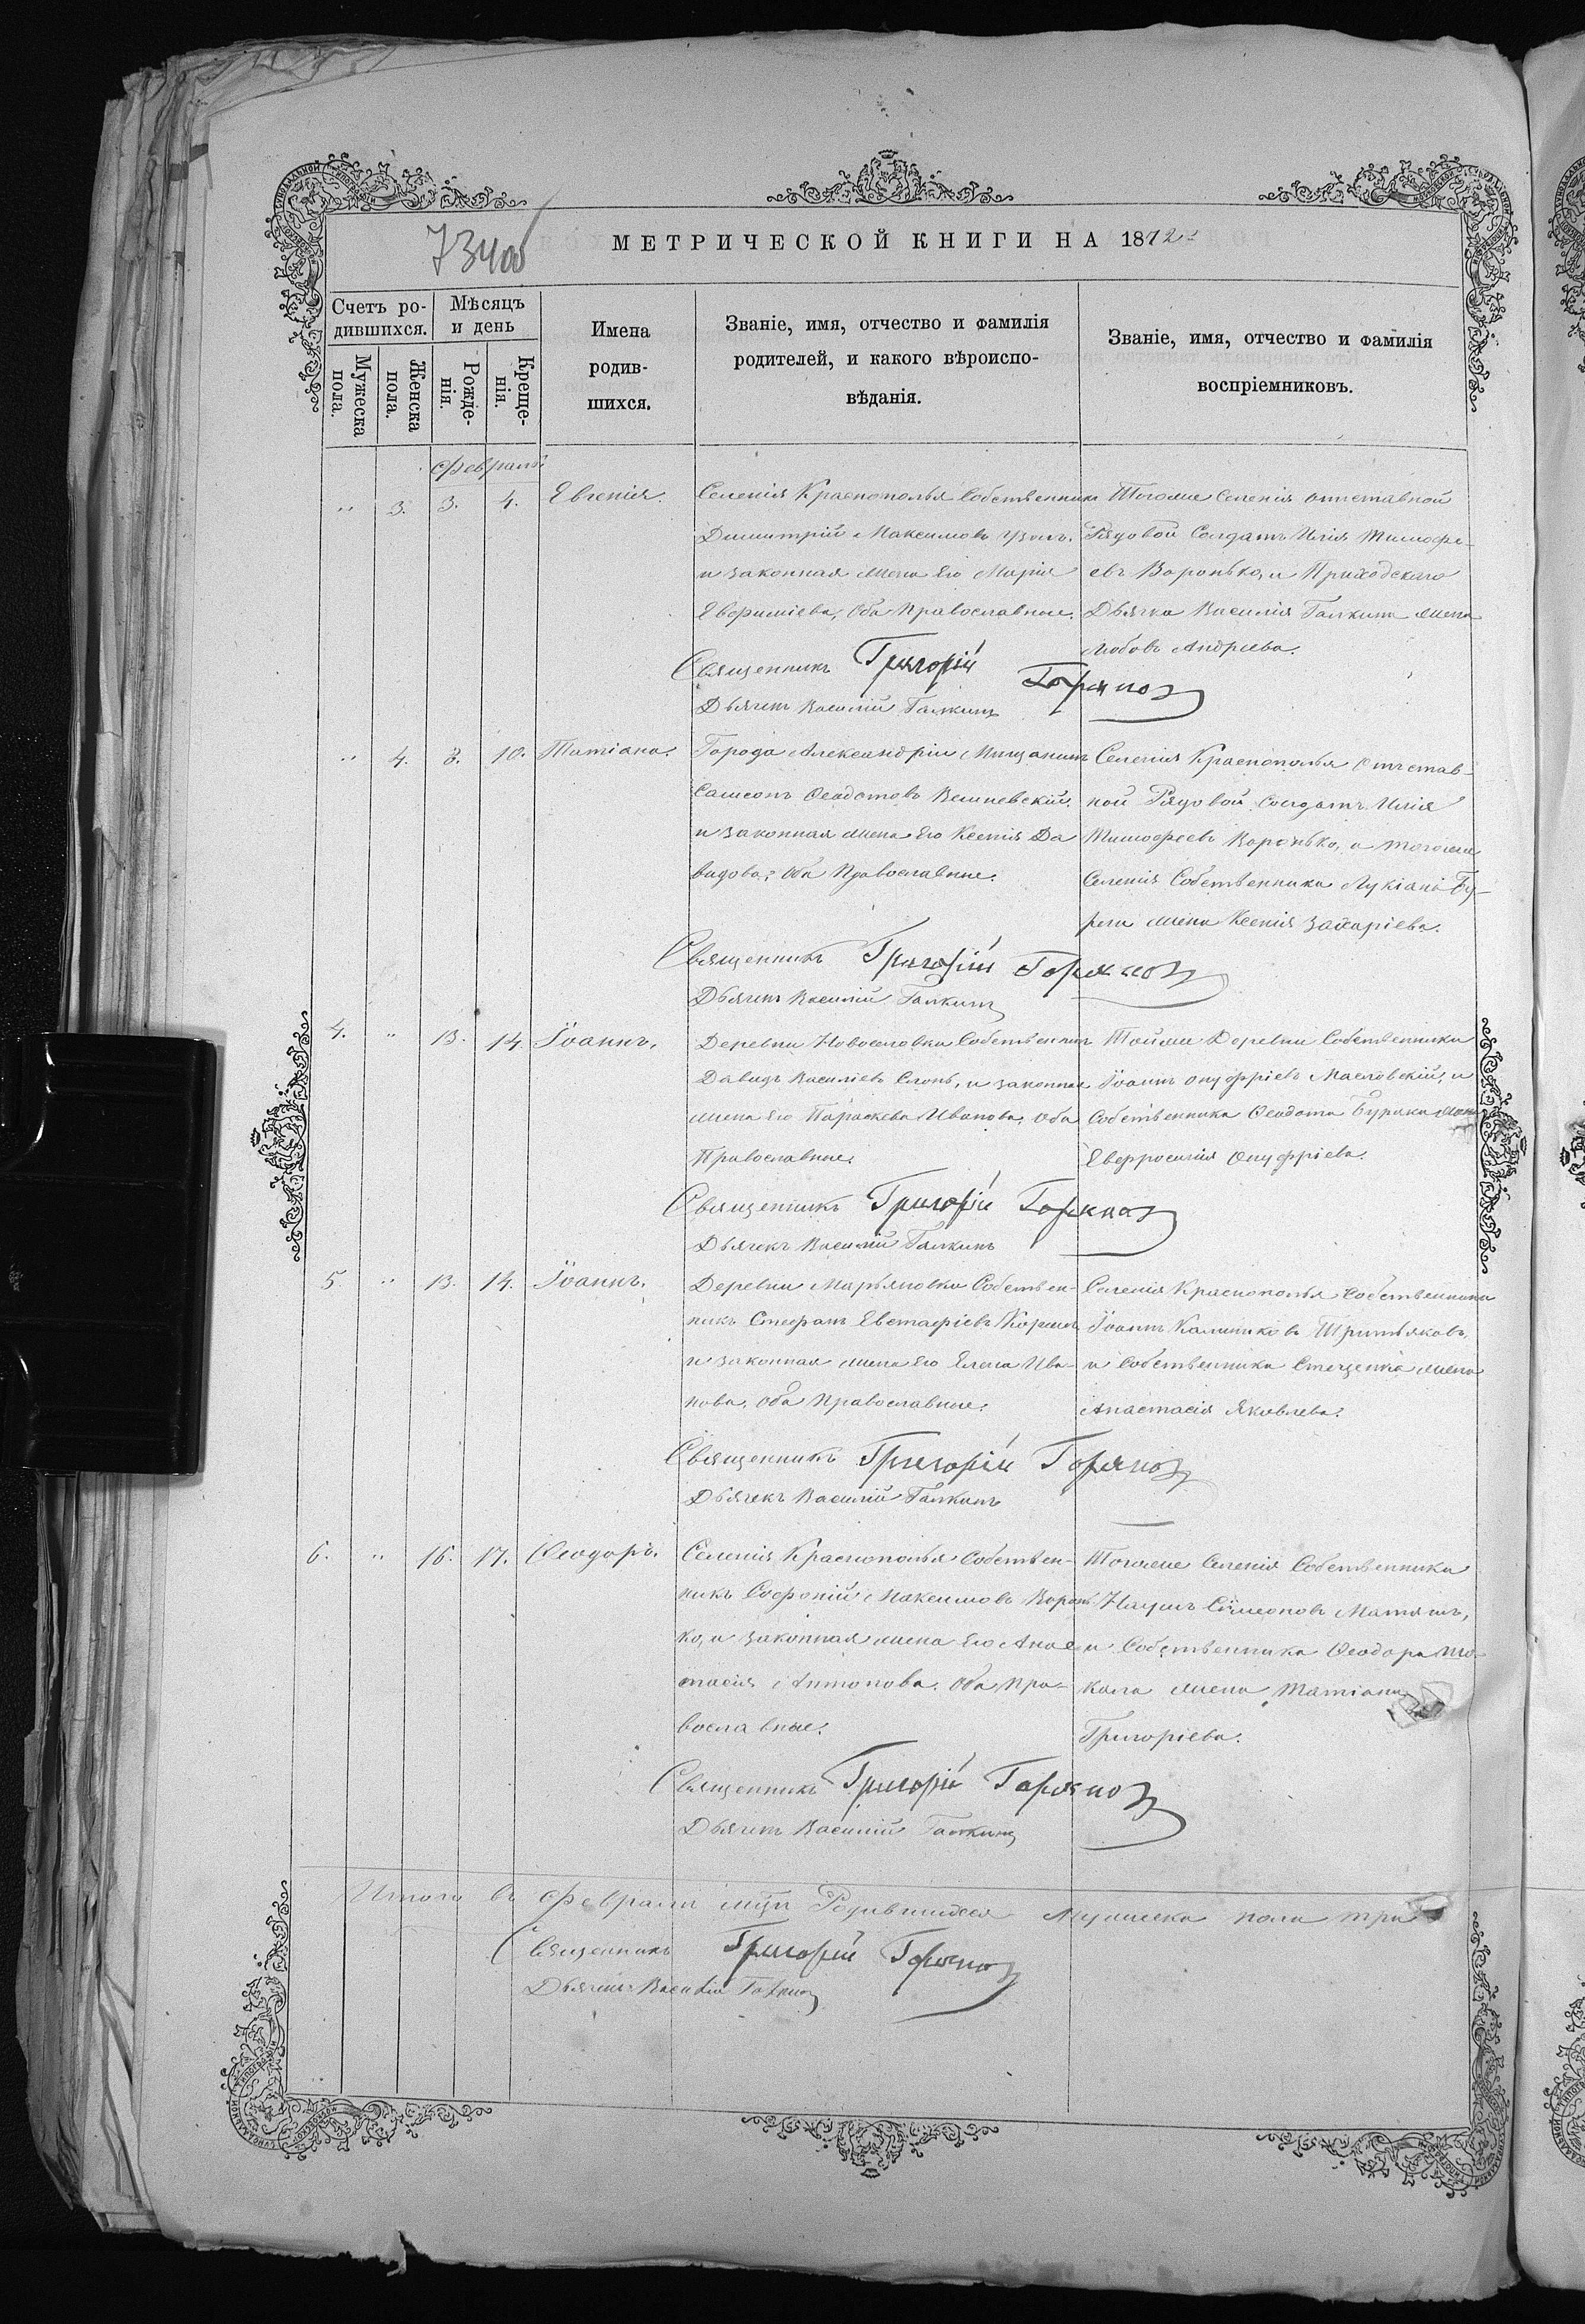 734 об
МЕТРИЧЕСКОЙ КНИГИ НА 1872
Счетъ родившихся.
Мужеска пола.
Женска пола.
Мѣсяцъ и день
Рожденія.
Крещенія.
Имена родившихся.
Званіе, имя, отчество и фамилія родителей, и какого вѣроисповѣданія.
Званіе, имя, отчество и фамилія воспріемниковъ.
Февраль
" 3. 3. 4. Евгенія.
Селенія Краснополья Собственникъ
Димитрій Максимовъ
и законная жена его Марія
Евфиміева, Оба Православные.
Тогоже Селенія отставной
Рядовой Солдатъ Илія Тимофе-
евъ Воронько, и Приходскаго
Дьячка Василія Галкина жена
Любовь Андреева.
Священникъ Григорій Горяновъ
Дьячекъ Василій Галкинъ
" 4. 8. 10. Татіана.
Города Александріи Мищанинъ
Самсонъ Ѳеодотовъ Вешневскій,
и законная жена Его Ксенія Да
видова, Оба Православные.
Селенія Краснополья Отстав-
ной Рядовой Солдатъ Илія
Тимофеевъ Воронько, и тогоже
Селенія Собственника Лукіана Бу-
жена Ксенія Захаріева.
Священникъ Григорій Горяновъ
Дьячекъ Василій Галкинъ
4. " 13. 14. Іоаннъ.
Деревни Новоселовки Собственникъ
Давидъ Василіевъ Слонь, и законная
жена Его Параскева Иванова, Оба
Православные.
Тойже Деревни Собственники
Іоаннъ Онуфріевъ Масловскій, и
Собственника Ѳеодота Буряка жена
Евфросинія Онуфріева.
Священникъ Григорій Горяновъ
Дьячекъ Василій Галкинъ
5. " 13. 14. Іоаннъ.
Деревни Марьяновки Собствен-
никъ Стефанъ Евстафіевъ
и законная жена Его Елена Ива-
нова, Оба Православные.
Селенія Краснополья Собственники
Іоаннъ Калиниковъ Третьяковъ,
и Собственника Стеценка жена
Анастасія Яковлева.
Священникъ Григорій Горяновъ
Дьячекъ Василій Галкинъ
6. " 16. 17. Ѳеодоръ.
Селенія Краснополья Собствен-
никъ Софоній Максимовъ Воронь
ко, и законная жена Его Анас
тасія Антонова. Оба Пра-
вославные.
Тогоже Селенія Собственники
Наумъ Симеоновъ Матяшъ,
и Собственника Ѳеодора
жена Татіана
Григоріева.
Священникъ Григорій Горяновъ
Дьячекъ Василій Галкинъ
Итого въ Февралѣ м-цѣ Родившихся Мужеска пола три
Священникъ Григорій Горяновъ
Дьячекъ Василій Галкинъ